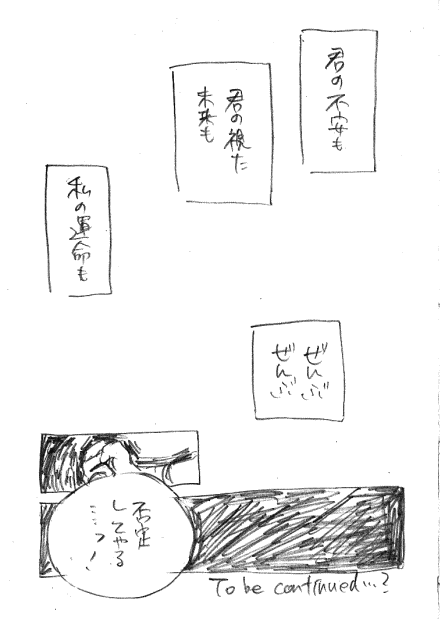 君の不安も
君の視た
未来も
私の運命も
ぜんぶ
ぜんぶ
否定
してやる
……っ!
To be continued...?